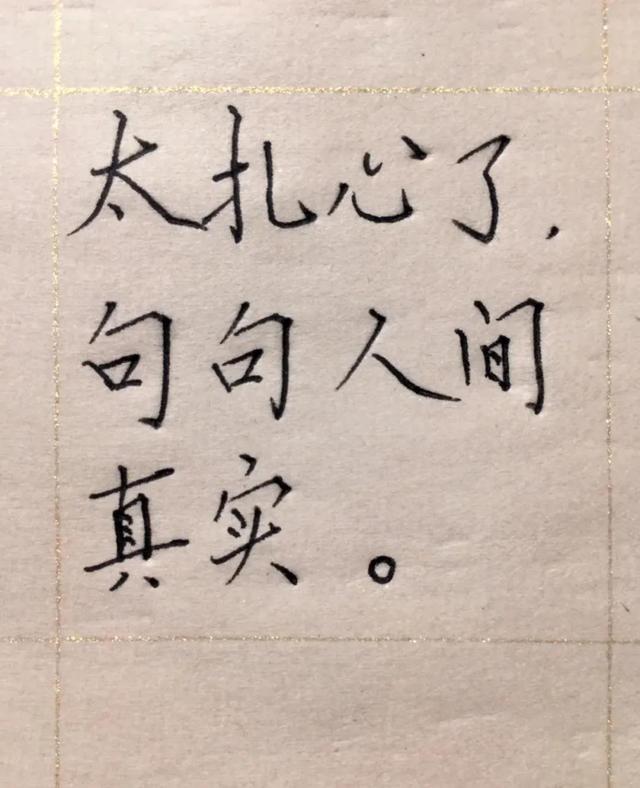 太扎心了，
句句人间
真实。